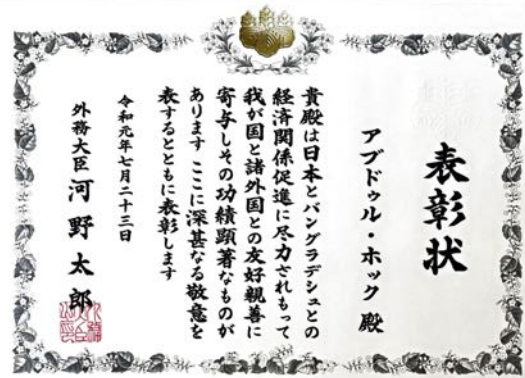 表彰状
アブドゥル・ホック 殿
貴殿は日本とバングラデシュとの
経済関係促進に尽力されもって
我が国と諸外国との友好親善に
寄与しその功績顕著なものが
あります ここに深甚なる敬意を
表するとともに表彰します
令和元年七月二十三日
外務大臣 河野太郎